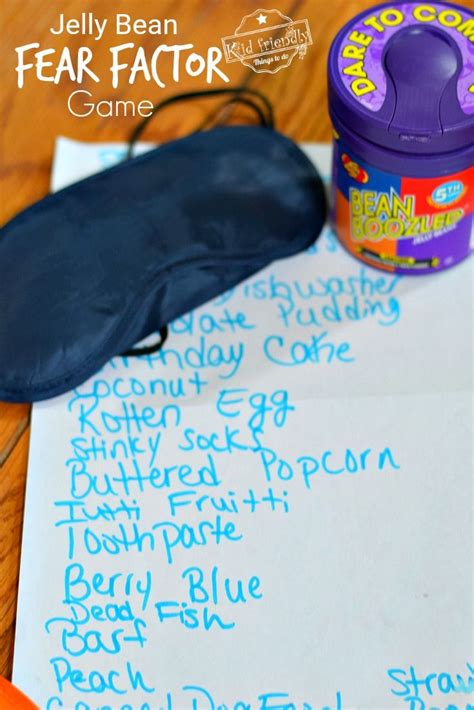 Jelly Bean
FEAR FACTOR
Game
Kid friendly
Things to do
DARE TO COM
5TH
BEAN
BOOZLED
JELLY BEANS
ishwasher
late Pudding
rthday Cake
Coconut
Rotten Egg
Stinky Socks
Buttered Popcorn
Tutti Fruitti
Toothpaste
Berry Blue
Dead Fish
Barf
Peach
Straw
Canned Dog Food